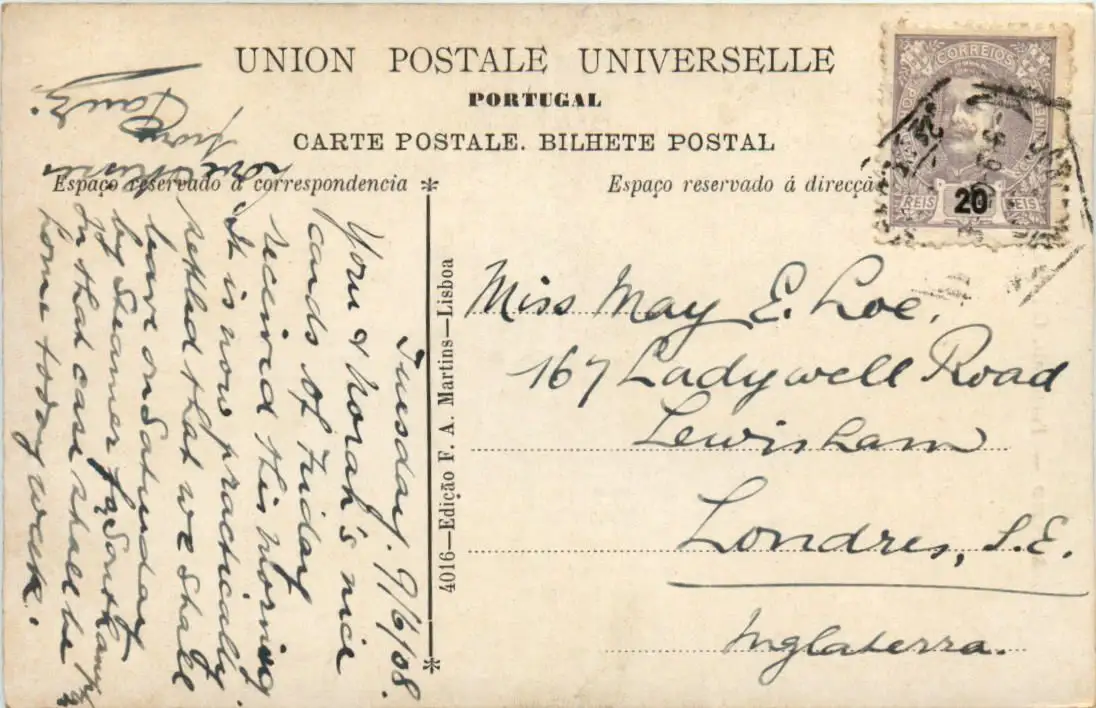 UNION POSTALE UNIVERSELLE
PORTUGAL
CARTE POSTALE. BILHETE POSTAL
Espaço reservado á correspondencia
Espaço reservado á direcçã
CORREIOS
20
REIS REIS
4016—Edição F. A. Martins—Lisboa
Tuesday. 9/6/08.
Your & Norah's nice
cards of Friday
received this morning
It is now practically
settled that we shall
leave on Saturday
by Steamer for Southampt
In that case shall be
home today week.
from
Miss May E. Loe,
167 Ladywell Road
Lewisham
Londres, S.E.
Inglaterra.